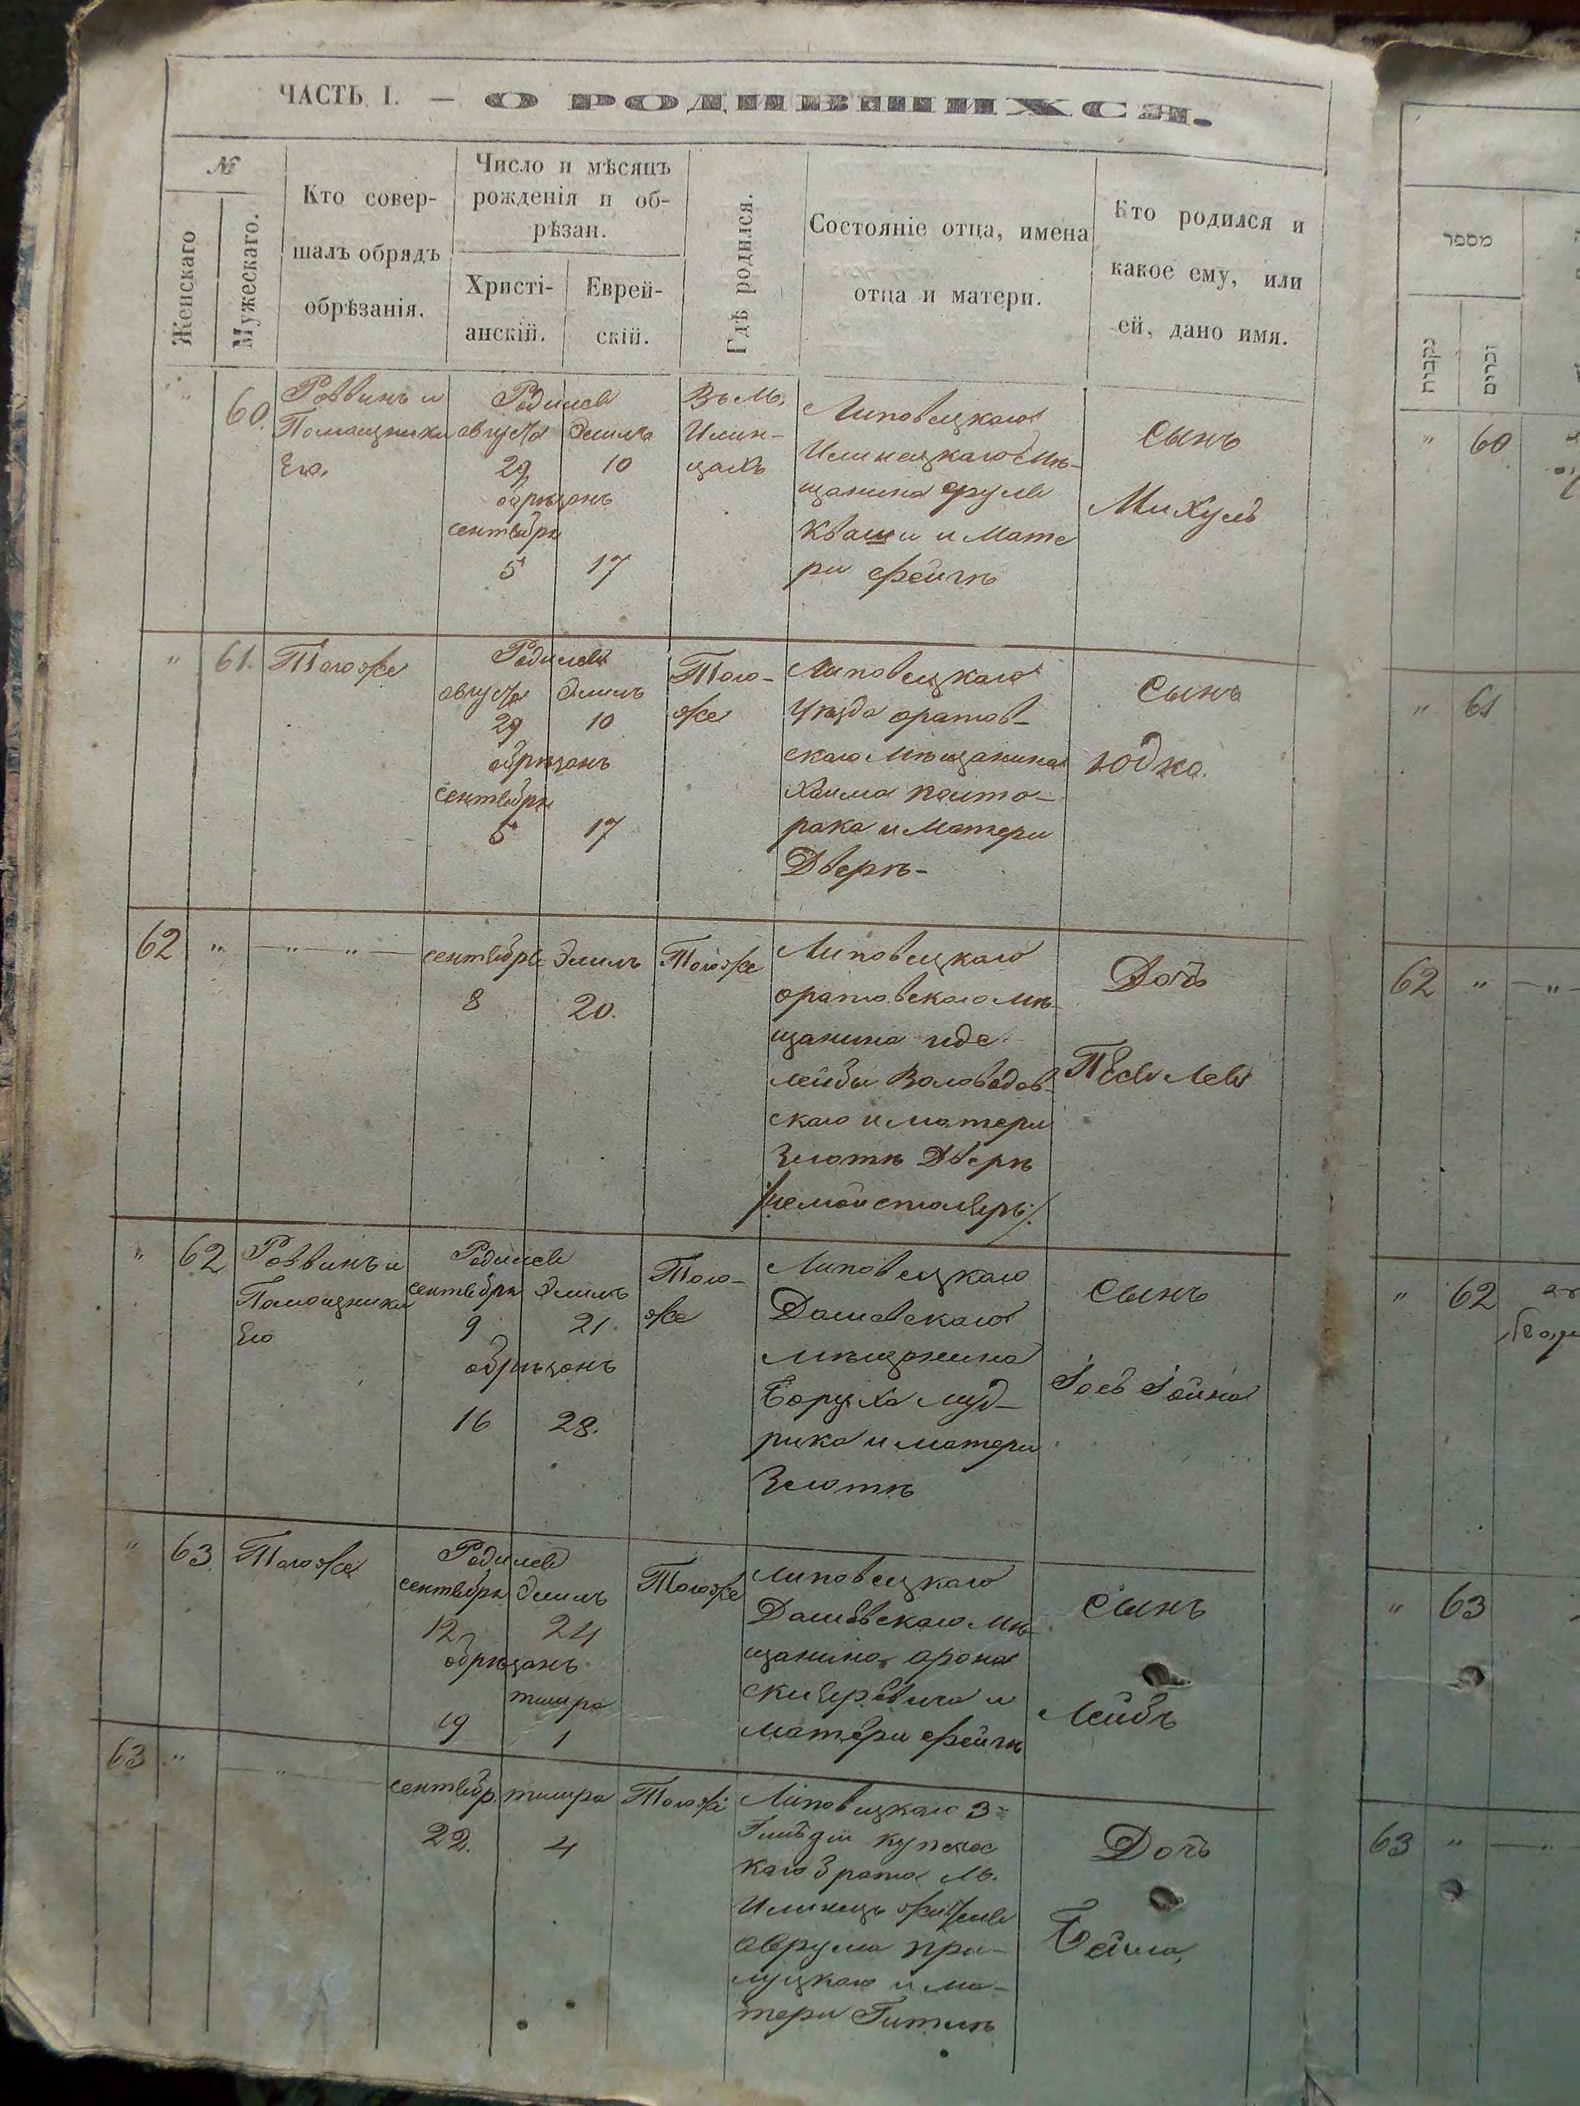 ЧАСТЬ I. — О РОДИВШИХСЯ.
№
Женскаго
Мужескаго.
Кто совер-
шалъ обрядъ
обрѣзанія.
Число и мѣсяцъ
рожденія и об-
рѣзан.
Христі-
анскій.
Еврей-
скій.
Гдѣ родился.
Состояніе отца, имена
отца и матери.
Кто родился и
какое ему, или
ей, дано имя.
" 60.
Раввинъ и
Помащники
Его.
Родился
августа Элилъ
29 10
обрѣзанъ
сентября
5 17
Въ м.
Илин-
цахъ
Липовецкаго
Илинецкаго мѣ-
щанина Сруля
Кваши и Мате
ри Фейги
Сынъ
Михуль
" 61.
Тогоже
Родился
августа Элилъ
29 10
обрѣзанъ
сентября
5 17
Того-
же
Липовецкаго
Уезда Оратов-
скаго Мѣщанина
Хаима Полто-
рака и Матери
Двери-
Сынъ
Юдка.
62 " — " — " —
сентября Элилъ
8 20.
Тогоже
Липовецкаго
Оратовскаго мѣ-
щанина Иде
Лейбы
скаго и матери
Злоти Двери
Дочь
" 62
Раввинъ и
Помощники
Его
Родился
сентября Элилъ
9 21.
обрѣзанъ
16 28.
Того-
же
Липовецкаго
Дашевскаго
мѣщанина
Боруха Муд-
рика и матери
Злоти
Сынъ
" 63.
Тогоже
Родился
сентября Элилъ
12 24
обрѣзанъ
тишра
19 1
Тогоже
Липовецкаго
Дашевскаго Мѣ-
щанина Арона
и
матери Фейги
Сынъ
Лейбъ
63 " — " —
сентябр. тишра
22. 4
Тогоже
Липовецкаго 3й
Гильдіи купечес
каго брата М.
Илинецъ жителя
Аврума При-
луцкаго и ма-
тери Гители
Дочь
Бейла,
מספר
נקבות
זכרים
" 60
" 61
62 " — " —
" 62
" 63
63 " —